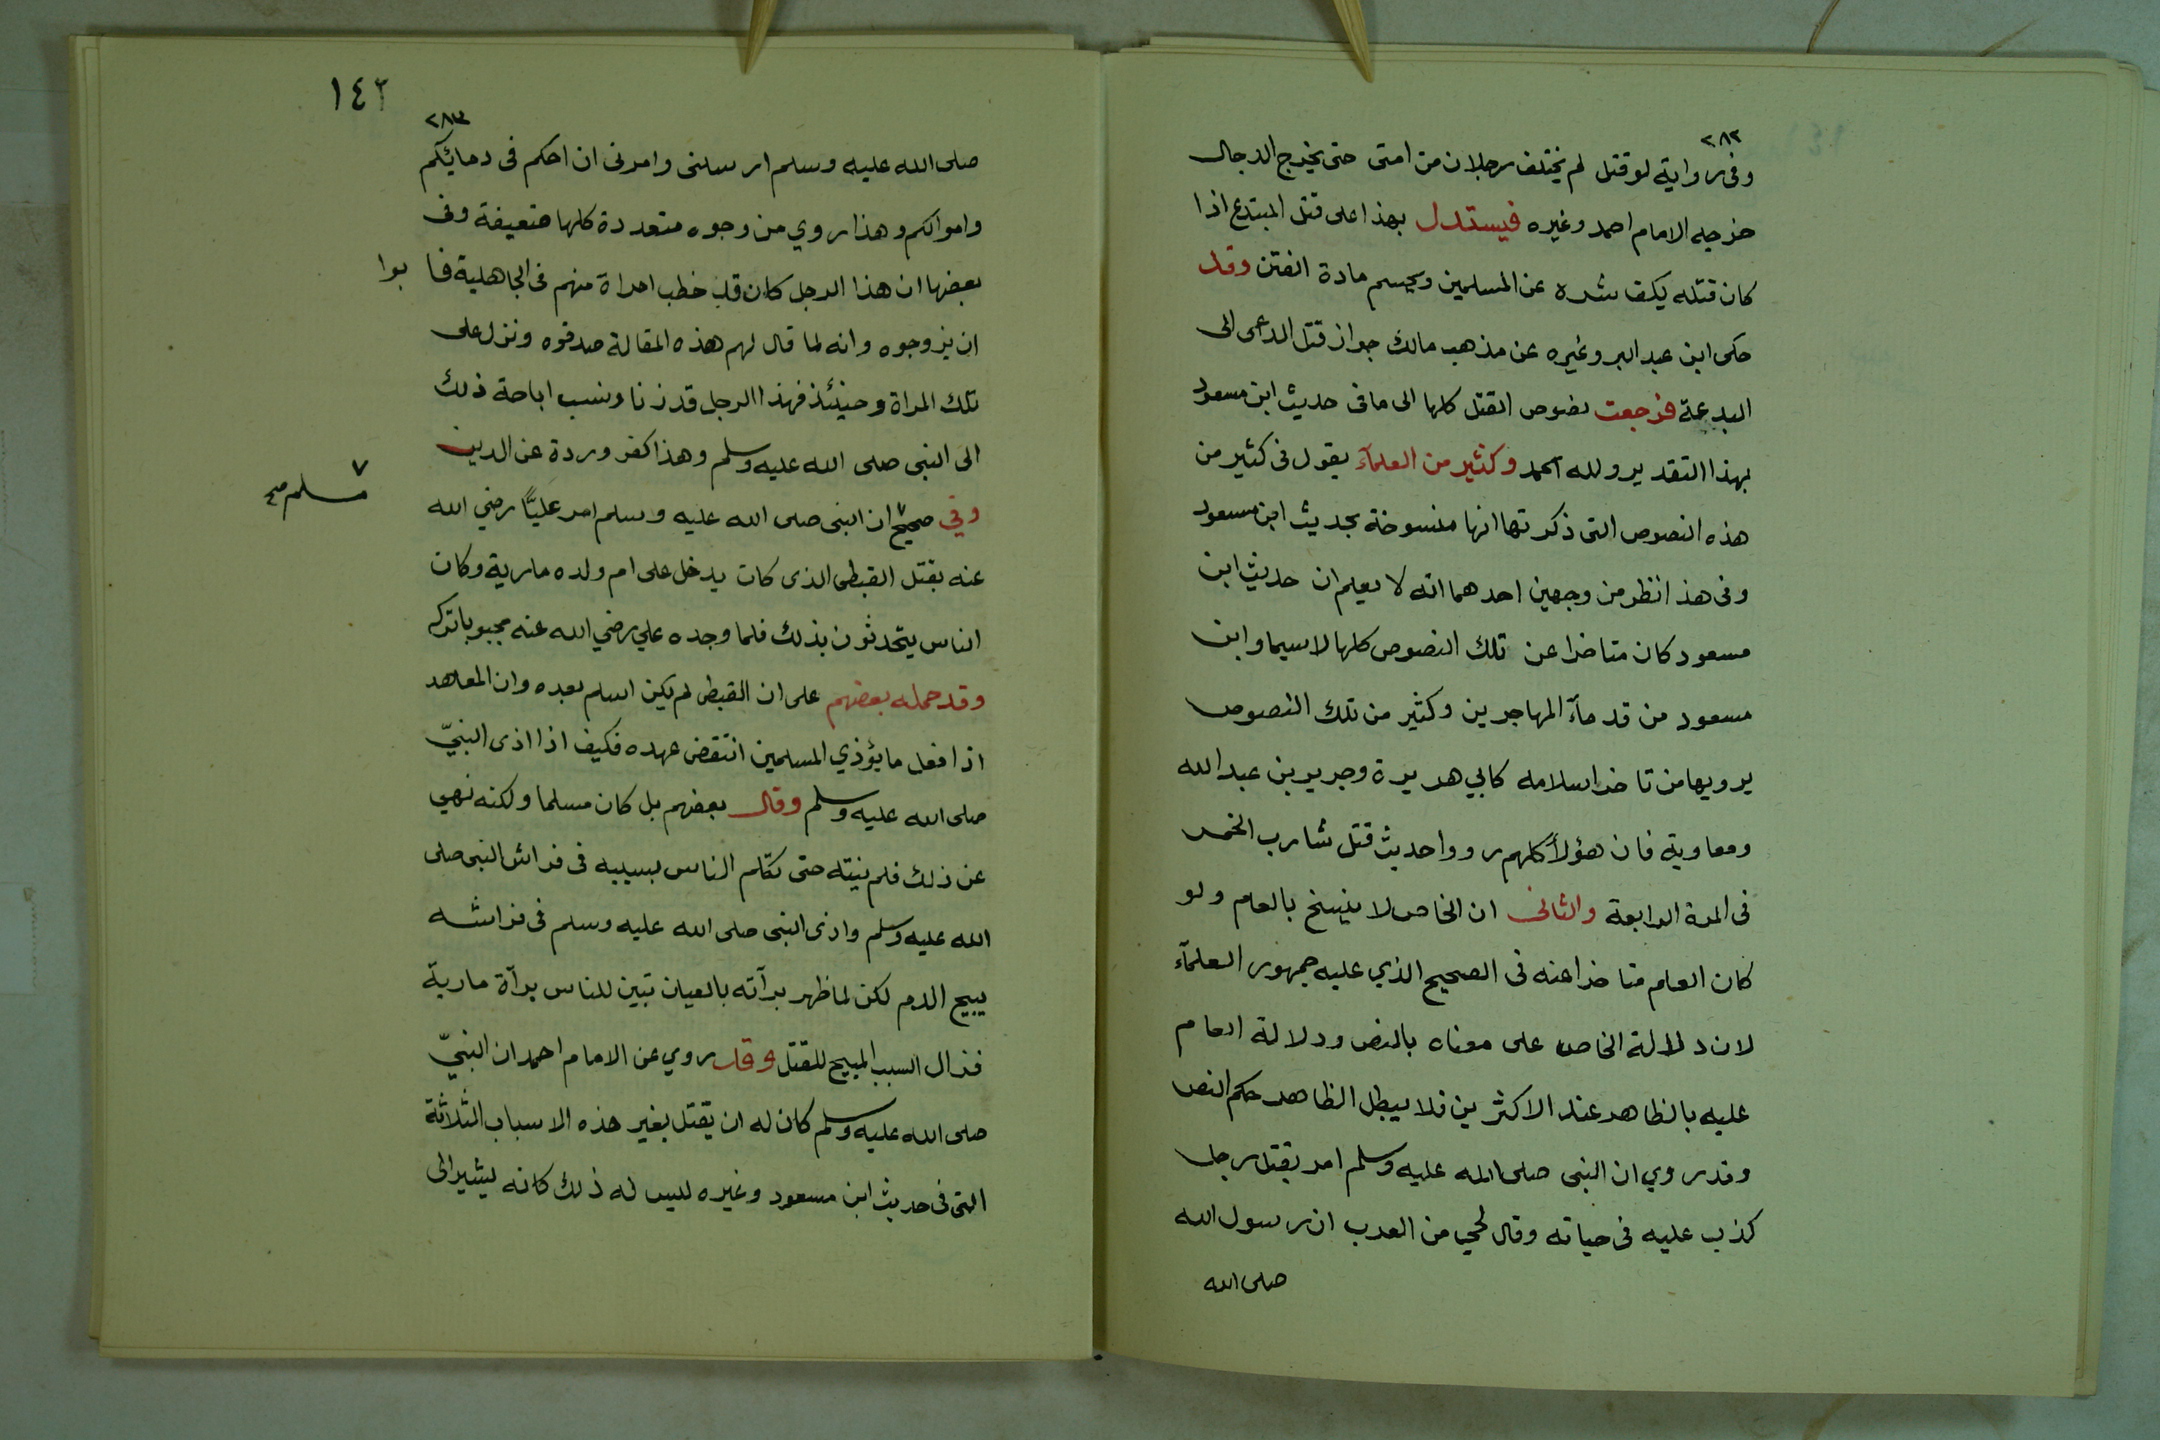 ٢٨٢
وفى رواية لو قتل لم يختلف رجلان من امتى حتى يخرج الدجال
خرجه الامام احمد وغيره فيستدل بهذا على قتل المبتدع اذا
كان قتله يكف شره عن المسلمين ويحسم مادة الفتن وقد
حكى ابن عبد البر وغيره عن مذهب مالك جواز قتل الدعى الى
البدعة فرجعت نصوص القتل كلها الى ما فى حديث ابن مسعود
بهذا التقدير ولله الحمد وكثير من العلمآء يقول فى كثير من
هذه النصوص التى ذكرتها انها منسوخة بحديث ابن مسعود
وفى هذا نظر من وجهين احدهما انه لا يعلم ان حديث ابن
مسعود كان متاخرا عن تلك النصوص كلها لا سيما وابن
مسعود من قدمآء المهاجرين وكثير من تلك النصوص
يرويها من تاخر اسلامه كابي هريرة وجرير بن عبد الله
ومعاوية فان هؤلآ كلهم رووا حديث قتل شارب الخمر
فى المرة الرابعة والثانى ان الخاص لا ينسخ بالعام ولو
كان العام متاخرا عنه فى الصحيح الذي عليه جمهور العلمآء
لان دلالة الخاص على معناه بالنص ودلالة العام
عليه بالظاهر عند الاكثرين فلا يبطل الظاهر حكم النص
وقد روي ان النبى صلى الله عليه وسلم امر بقتل رجل
كذب عليه فى حياته وقال لحي من العرب ان رسول الله
صلى الله
١٤٢
٢٨٣
صلى الله عليه وسلم ارسلنى وامرنى ان احكم فى دمائكم
واموالكم وهذا روي من وجوه متعددة كلها ضعيفة وفى
بعضها ان هذا الرجل كان قد خطب امراة منهم فى الجاهلية فا بوا
ان يزوجوه وانه لما قال لهم هذه المقالة صدقوه ونزل على
تلك المراة وحينئذ فهذا الرجل قد زنا ونسب اباحة ذلك
الى النبى صلى الله عليه وسلم وهذا كفر وردة عن الدين
وفي صحيح ان النبى صلى الله عليه وسلم امر عليًّا رضي الله
٧
مسلم صح
عنه بقتل القبطى الذى كان يدخل على ام ولده مارية وكان
الناس يتحدثون بذلك فلما وجده علي رضي الله عنه مجبوبا تركه
وقد حمله بعضهم على ان القبطى لم يكن اسلم بعده وان المعاهد
اذا فعل ما يؤذي المسلمين انتقض عهده فكيف اذا اذى النبيّ
صلى الله عليه وسلم وقال بعضهم بل كان مسلما ولكنه نهي
عن ذلك فلم ينته حتى تكلم الناس بسببه فى فراش النبى صلى
الله عليه وسلم واذى النبى صلى الله عليه وسلم فى فراشه
يبيح الدم لكن لما ظهر برآته بالعيان تبين للناس برآة مارية
فزال السبب المبيح للقتل وقد روي عن الامام احمد ان النبيّ
صلى الله عليه وسلم كان له ان يقتل بغير هذه الاسباب الثلاثة
التى فى حديث ابن مسعود وغيره ليس له ذلك كانه يشير الى